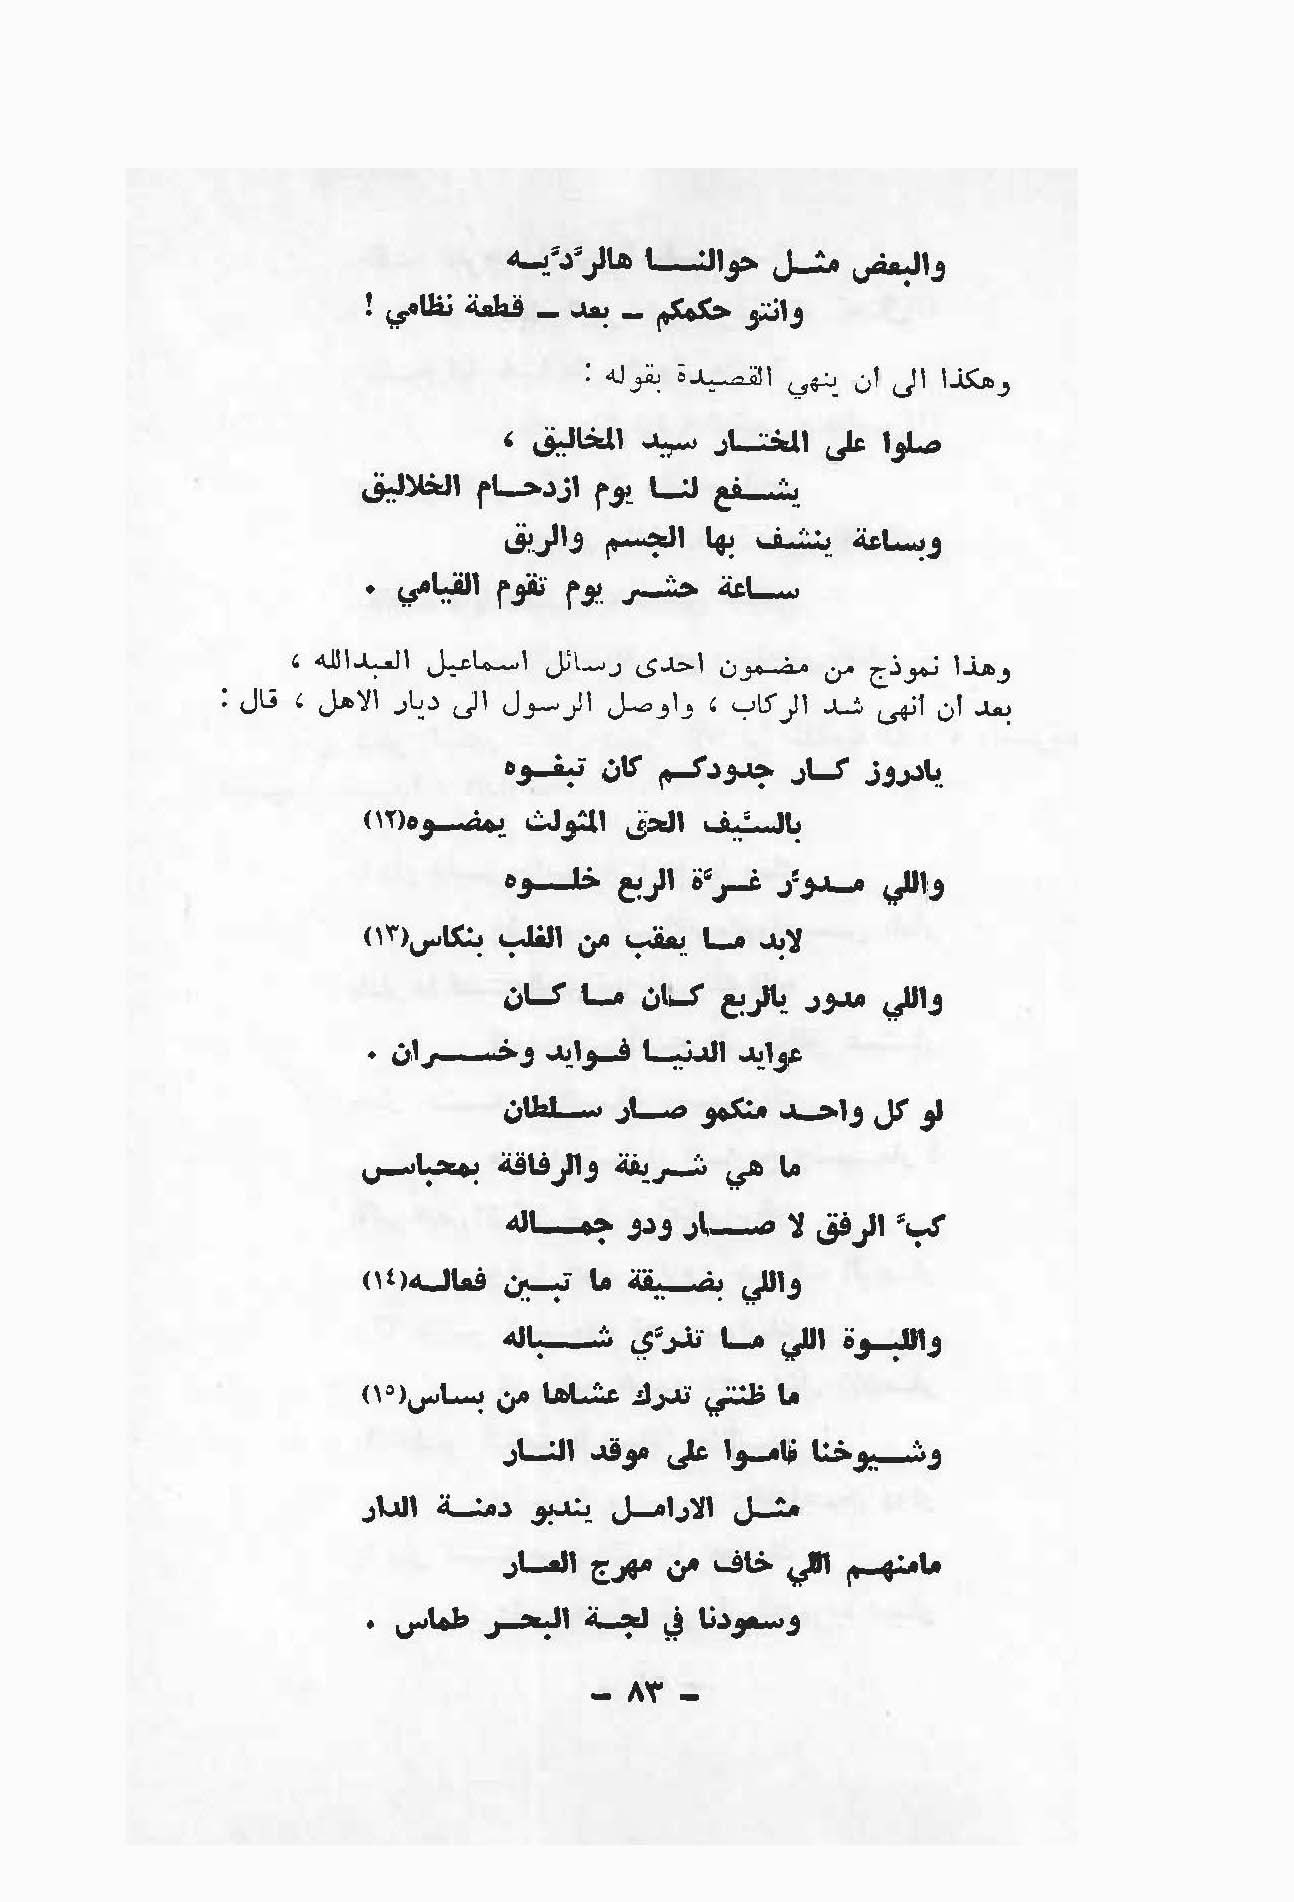 والبعض مثل حوالنا هالرَّدَّيه
وانتو حكمكم – بعد – قطعة نظامي !
وهكذا الى ان ينهي القصيدة بقوله :
صلوا على المختار سيد المخاليق ،
يشفع لنا يوم ازدحام الخلاليق
وبساعة ينشف بها الجسم والريق
ساعة حشر يوم تقوم القيامي .
وهذا نموذج من مضمون احدى رسائل اسماعيل العبدالله ،
بعد أن أنهى شد الركاب ، واوصل الرسول الى ديار الاهل ، قال :
يادروز كار جدودكم كان تبغوه
بالسيَّف الحق المثولث يمضوه(١٢)
واللي مدوَّر غرَّة الربع خلوه
لابد ما يعقب من الغلب بنكاس(١٣)
واللي مدور يالربع كان ما كان
عوايد الدنيا فوايد وخسران .
لو كل واحد منكمو صار سلطان
ما هي شريفة والرفاقة بمحباس
كبَّ الرفق لا صار ودو جماله
واللي بضيقة ما تبين فعاله(١٤)
واللبوة اللي ما تذرَّي شباله
ما ظنتي تدرك عشاها من بساس(١٥)
وشيوخنا قاموا على موقد النار
مثل الارامل يندبو دمنة الدار
مامنهم اللي خاف من مهرج العار
وسعودنا في لجة البحر طماس .
– ٨٣ –